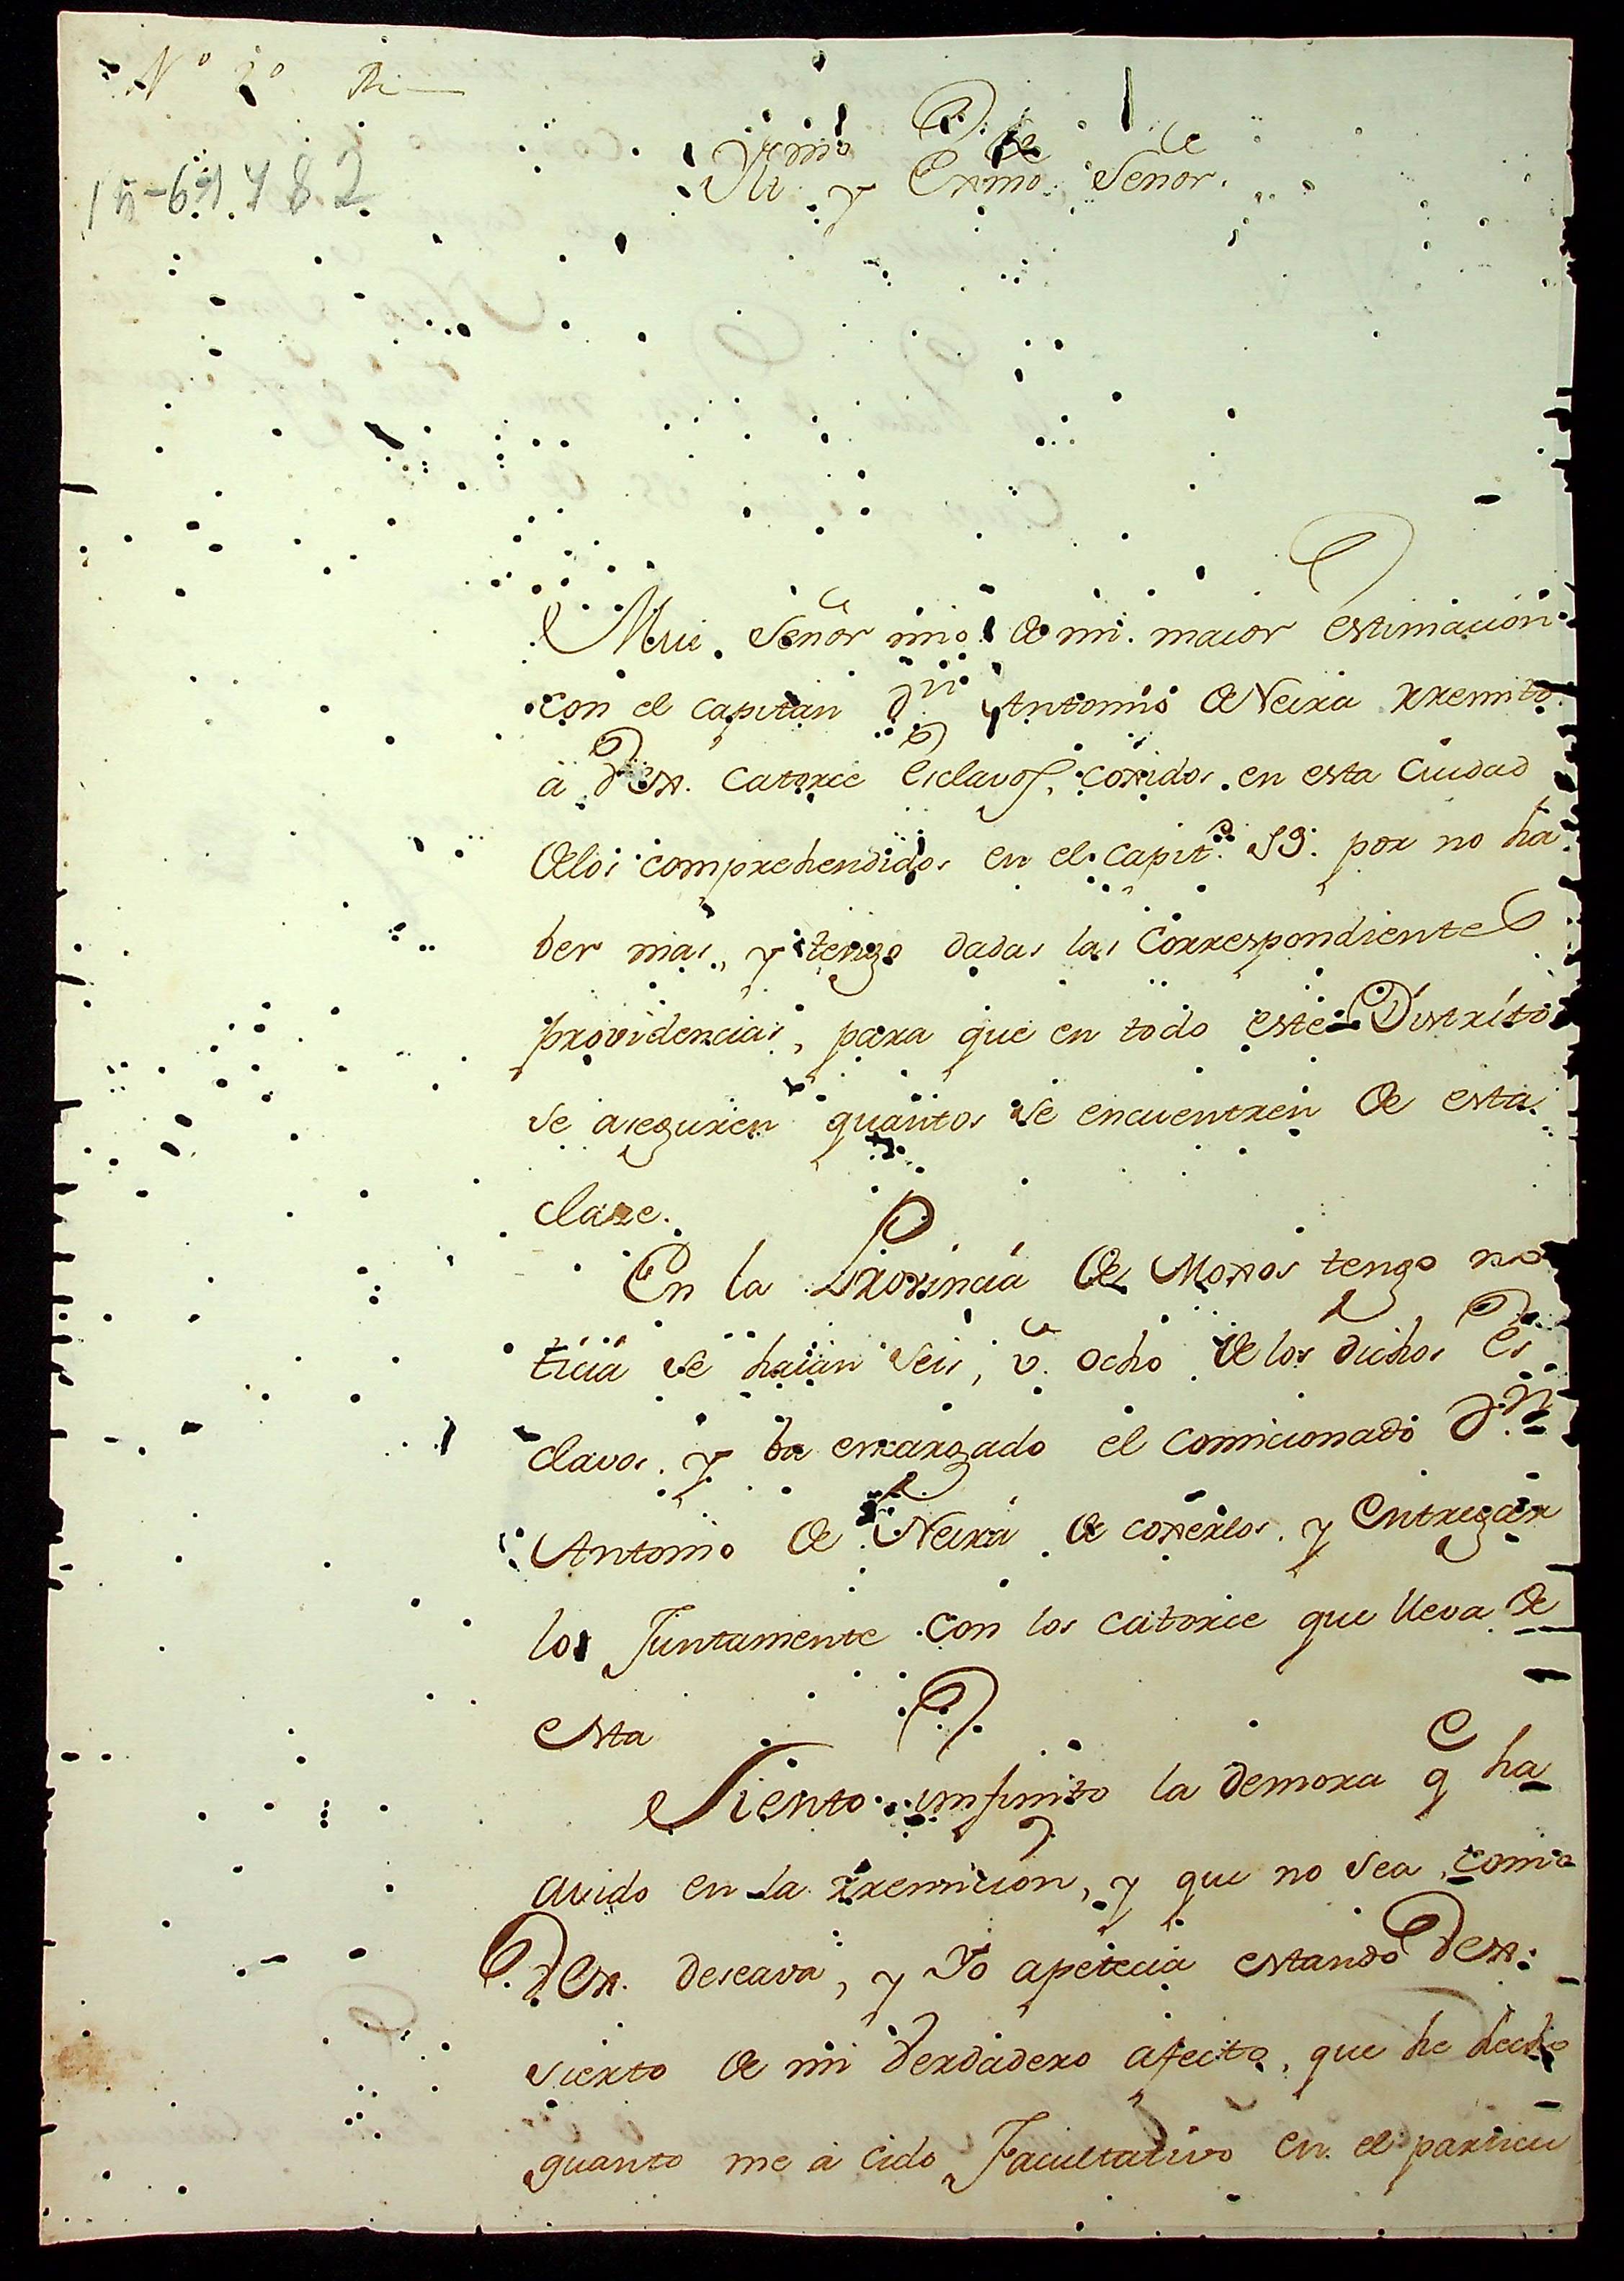 Nº 2º
Illmo y Exmo Señor.
Mui Señor mio de mi maior estimacion
con el capitan Dn Antonio de Neira rremito
à VEx. catorce esclavos, coxidos en esta Ciudad
delos comprehendidos en el capitº 19. por no ha
ber mas, y tengo dadas las correspondientes
providencias, para que en todo este Distrito
se aseguren quantos se encuentren de esta
claze.
En la Provincia de Moxos tengo no
ticia se haian seis, ù ocho de los dichos es
clavos y ba encargado el comicionado Dn
Antonio de Neira de coxerlos y entregar
los Juntamente con los catorce que lleva de
esta
Siento infinito la demora q ha
avido en la rremicion, y que no sea como
VEx. deseava, y Yo apetecia estando VEx.
sierto de mi verdadero afecto, que he hecho
quanto me à cido Facultativo en el particu